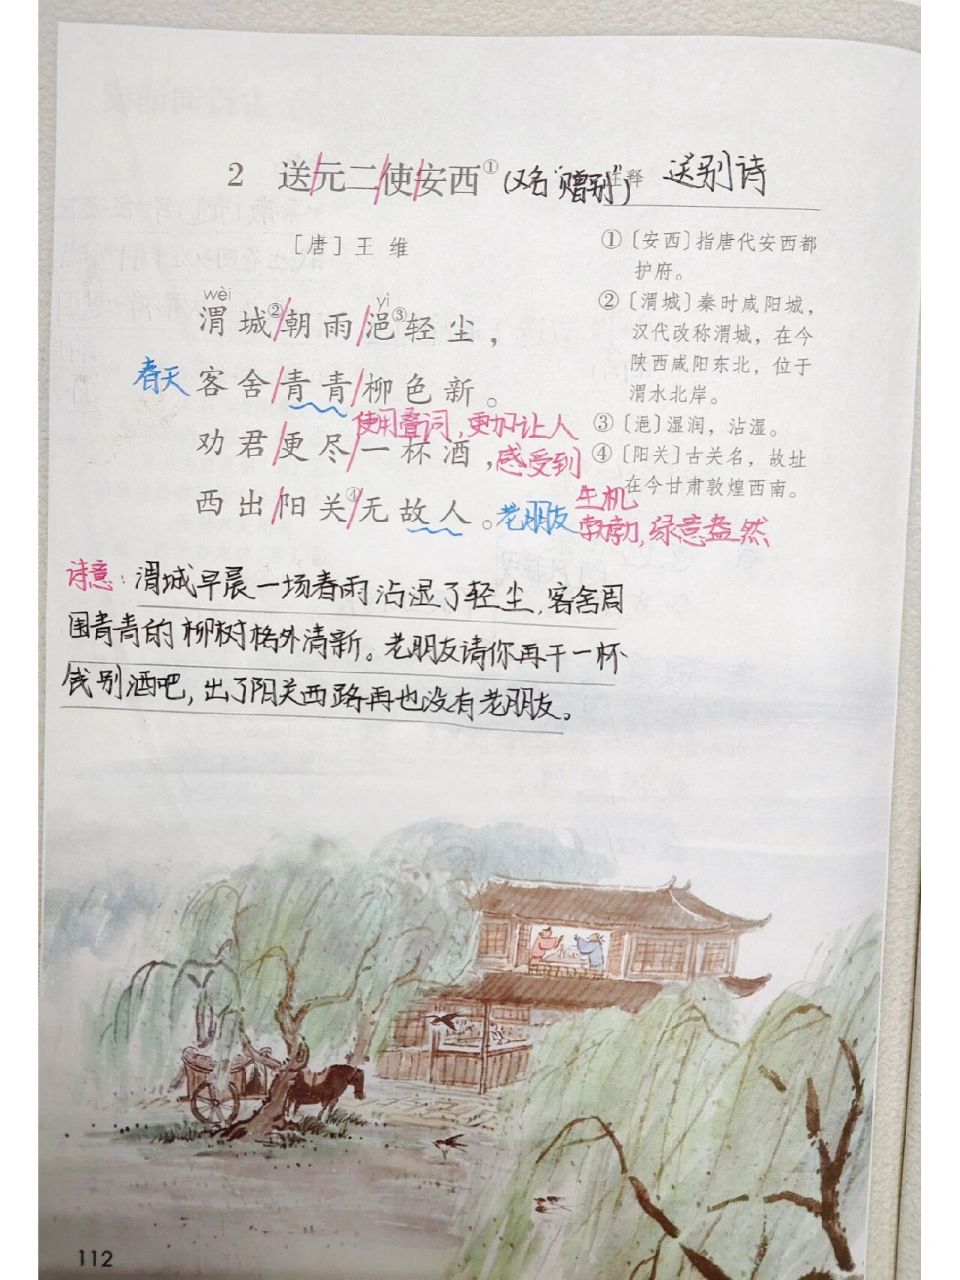 2 送/元二/使/安西① (又名“赠别”) 注释 送别诗
[唐] 王 维
wèi yì
渭城②/朝雨/浥③轻尘，
春天 客舍/青青/柳色新。
使用叠词，更加让人
劝君/更尽/一杯酒，感受到
生机
西出/阳关④/无故人。老朋友 勃勃，绿意盎然
①〔安西〕指唐代安西都
护府。
②〔渭城〕秦时咸阳城，
汉代改称渭城，在今
陕西咸阳东北，位于
渭水北岸。
③〔浥〕湿润，沾湿。
④〔阳关〕古关名，故址
在今甘肃敦煌西南。
诗意：渭城早晨一场春雨沾湿了轻尘，客舍周
围青青的柳树格外清新。老朋友请你再干一杯
饯别酒吧，出了阳关西路再也没有老朋友。
112